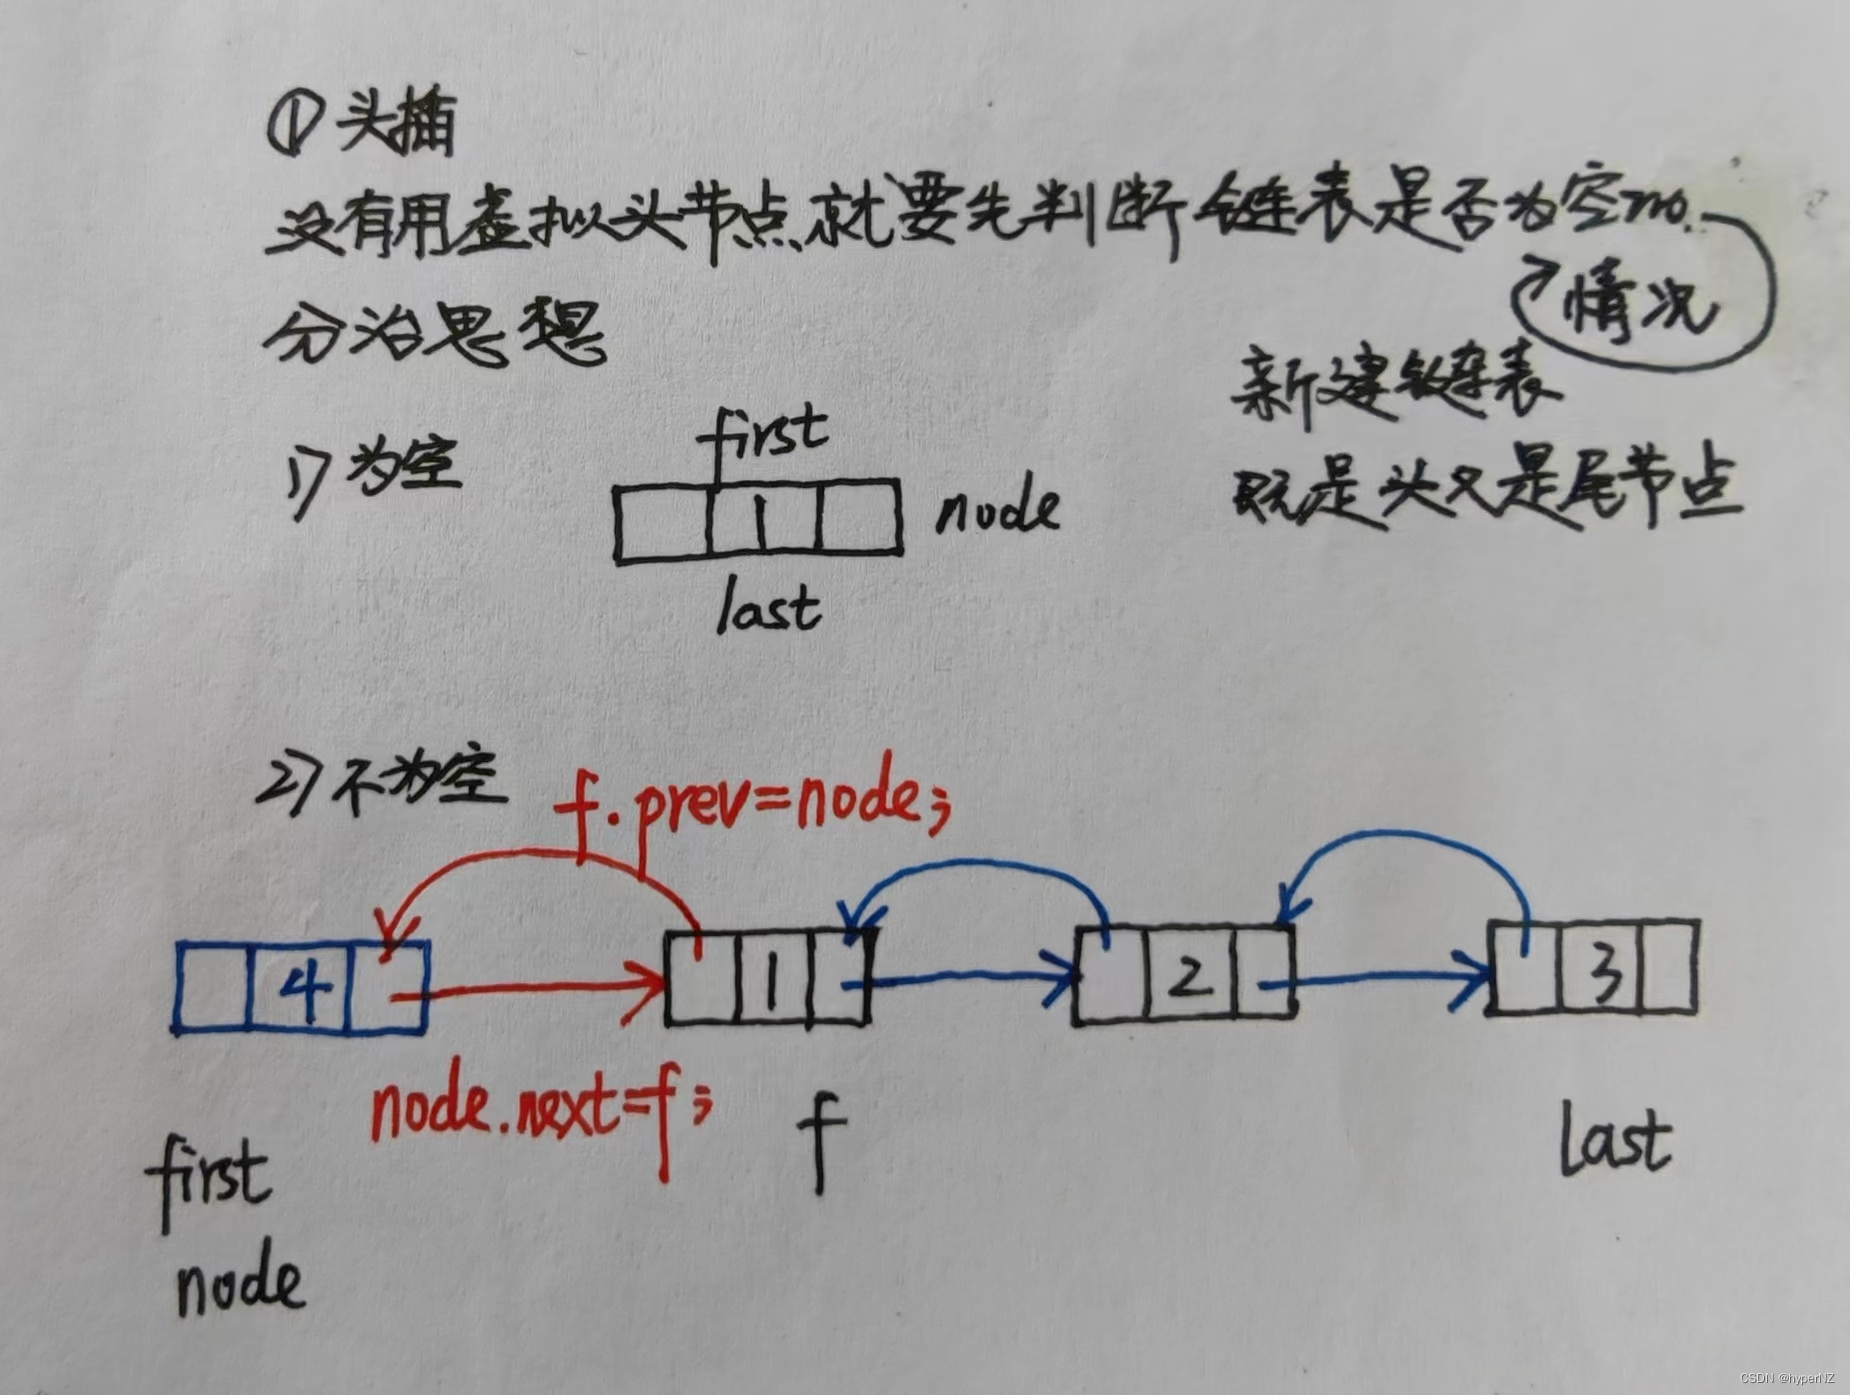 ① 头插
没有用虚拟头节点就要先判断链表是否为空no.
情况
分治思想
新建链表
既是头又是尾节点
1) 为空
first
1
node
last
2) 不为空
f.prev=node;
4 1 2 3
node.next=f;
f
last
first
node
CSDN @hyperNZ